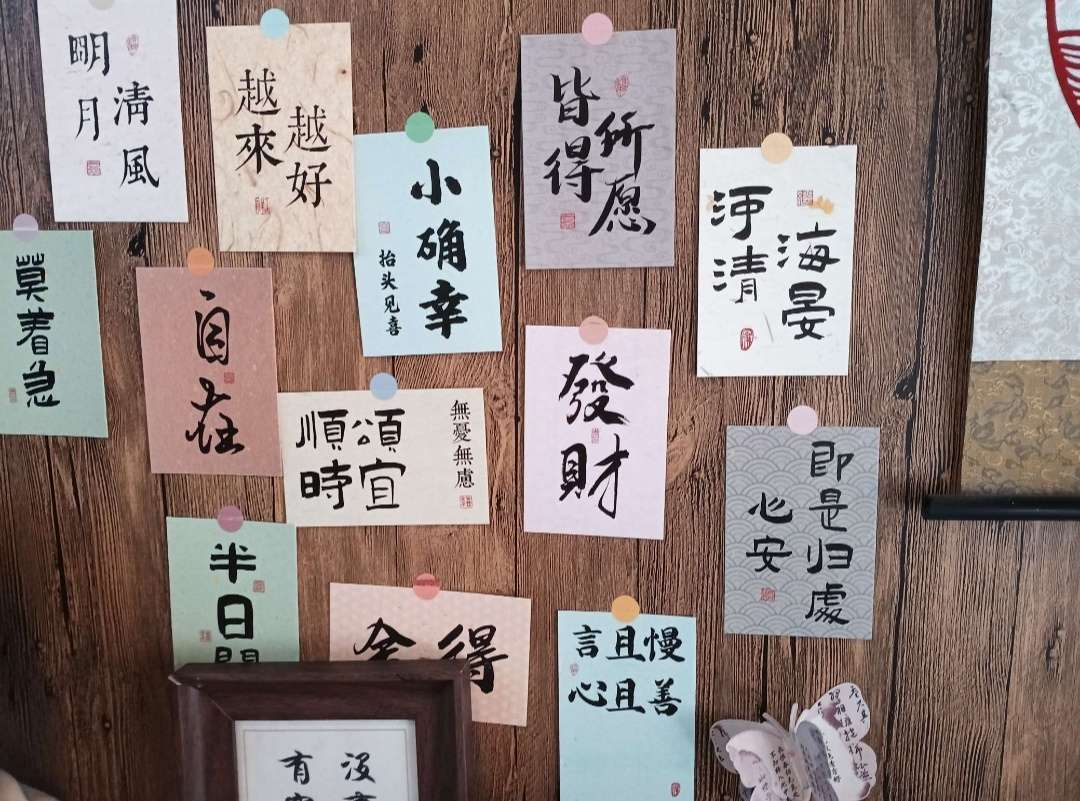 清風
明月
越來
越好
小确幸
抬头见喜
所愿
皆得
海晏
河清
莫着急
自在
順頌
時宜
無憂無慮
發財
心安
即是归處
半日
舍得
言且慢
心且善
没
有